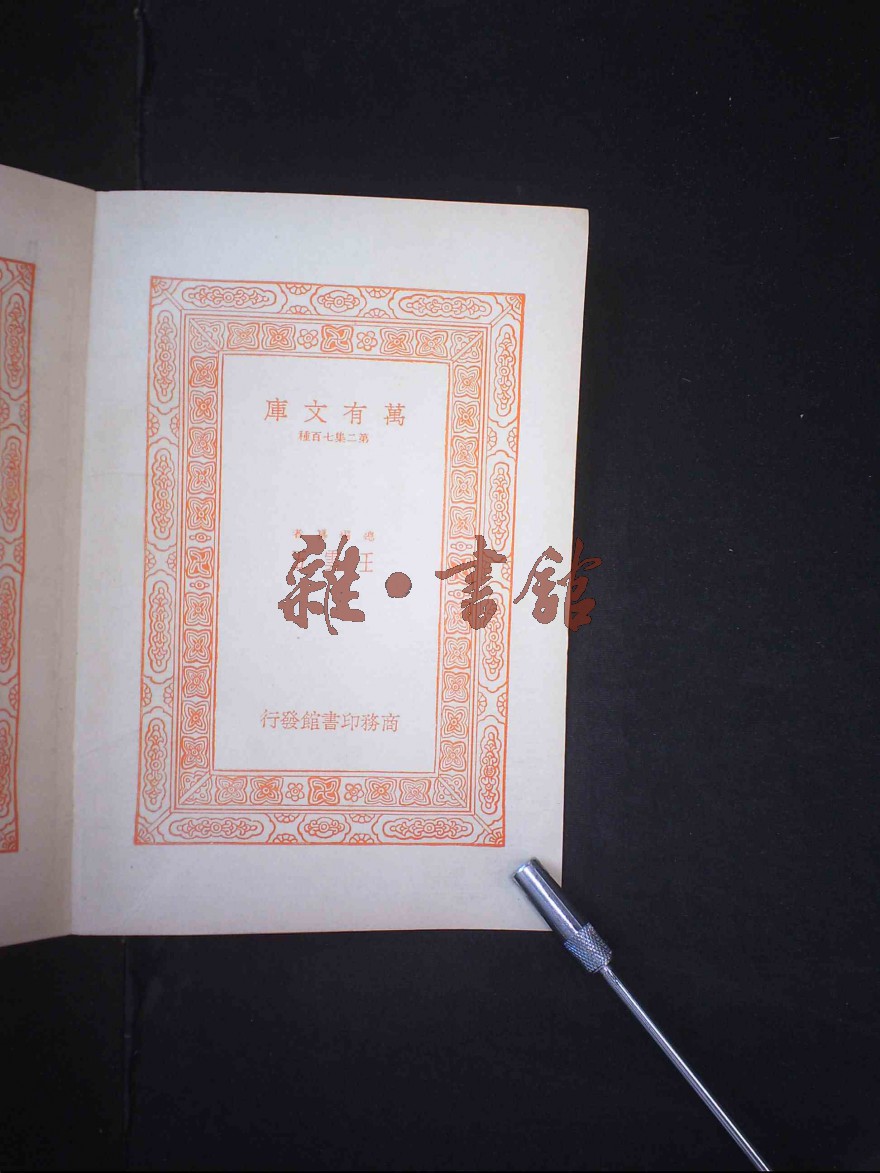 萬有文庫
第二集七百種
總編纂者
王雲
商務印書館發行
雜·書館